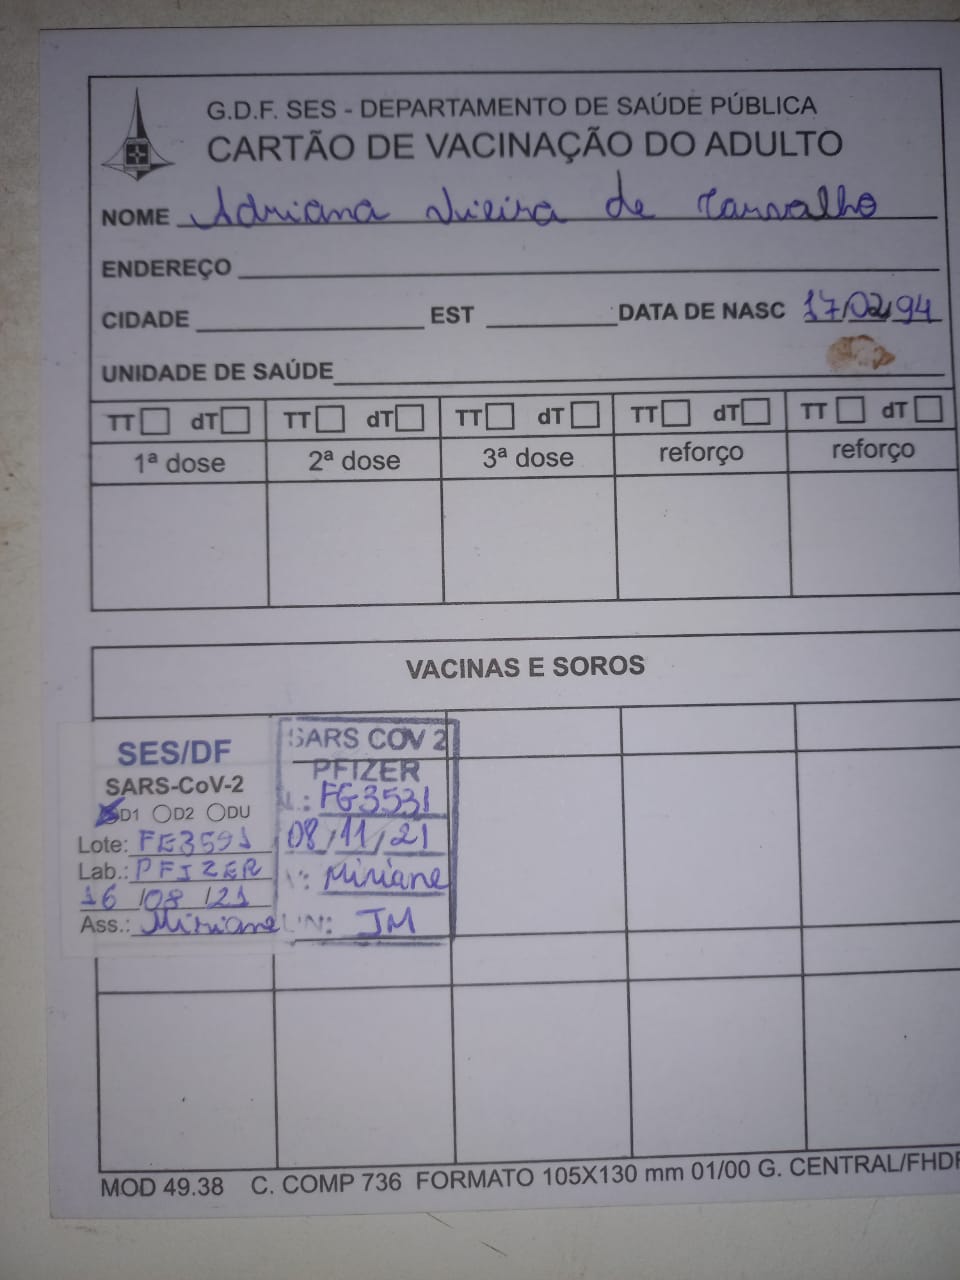 G.D.F. SES - DEPARTAMENTO DE SAÚDE PÚBLICA
CARTÃO DE VACINAÇÃO DO ADULTO
NOME Adriana Vieira de Carvalho
ENDEREÇO
CIDADE EST DATA DE NASC 17/02/94
UNIDADE DE SAÚDE
TT dT TT dT TT dT TT dT TT dT
1ª dose 2ª dose 3ª dose reforço reforço
VACINAS E SOROS
SES/DF
SARS-CoV-2
D1 D2 DU
Lote: FE3591
Lab.: PFIZER
16/08/21
Ass.: Miriane
SARS COV 2
PFIZER
L.: FG3531
08/11/21
V: Miriane
UN: JM
MOD 49.38 C. COMP 736 FORMATO 105X130 mm 01/00 G. CENTRAL/FHDF